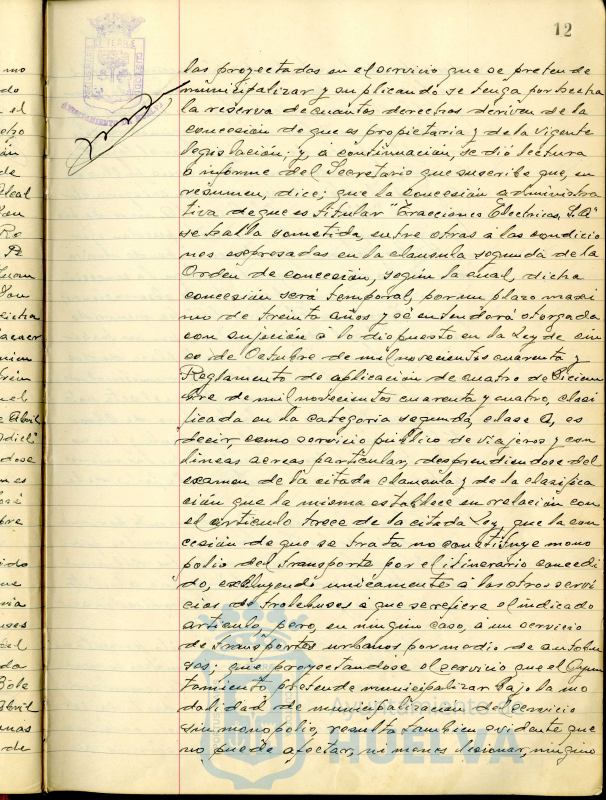 12
las proyectadas en el servicio que se pretende
municipalizar y suplicando se tenga por hecha
la reserva de cuantos derechos deriven de la
concesión de que es propietaria y de la vigente
legislación; y, á continuación, se dió lectura
á informe del Secretario que suscribe que, en
resúmen, dice; que la concesión administra
tiva de que es titular "Tracciones Electricas, S.A"
se halla sometida, entre otras á las condicio
nes expresadas en la clausula segunda de la
Orden de concesión, según la cual, dicha
concesión será temporal, por un plazo maxi
mo de treinta años y se entenderá otorgada
con sujeción á lo dispuesto en la Ley de cin
co de Octubre de mil novecientos cuarenta y
Reglamento de aplicación de cuatro de Diciem
bre de mil novecientos cuarenta y cuatro, clasi
ficada en la categoria segunda, clase A, es
decir, como servicio público de viajeros y con
lineas aereas particular, desprendiendose del
examen de la citada clausula y de la clasifica
ción que la misma establece en relación con
el artículo trece de la citada Ley, que la con
cesión de que se trata no constituye mono
polio del transporte por el itinerario concedi
do, excluyendo unicamente á los otros servi
cios de trolebuses a que se refiere el indicado
articulo, pero, en ningún caso, á un servicio
de transportes urbanos por medio de autobu
ses; que proyectandose el servicio que el Ayun
tamiento pretende municipalizar bajo la mo
dalidad de municipalización del servicio
sin monopolio, resulta tambien evidente que
no puede afectar, ni menos lesionar, ningúno
Ayuntamiento de
HUELVA